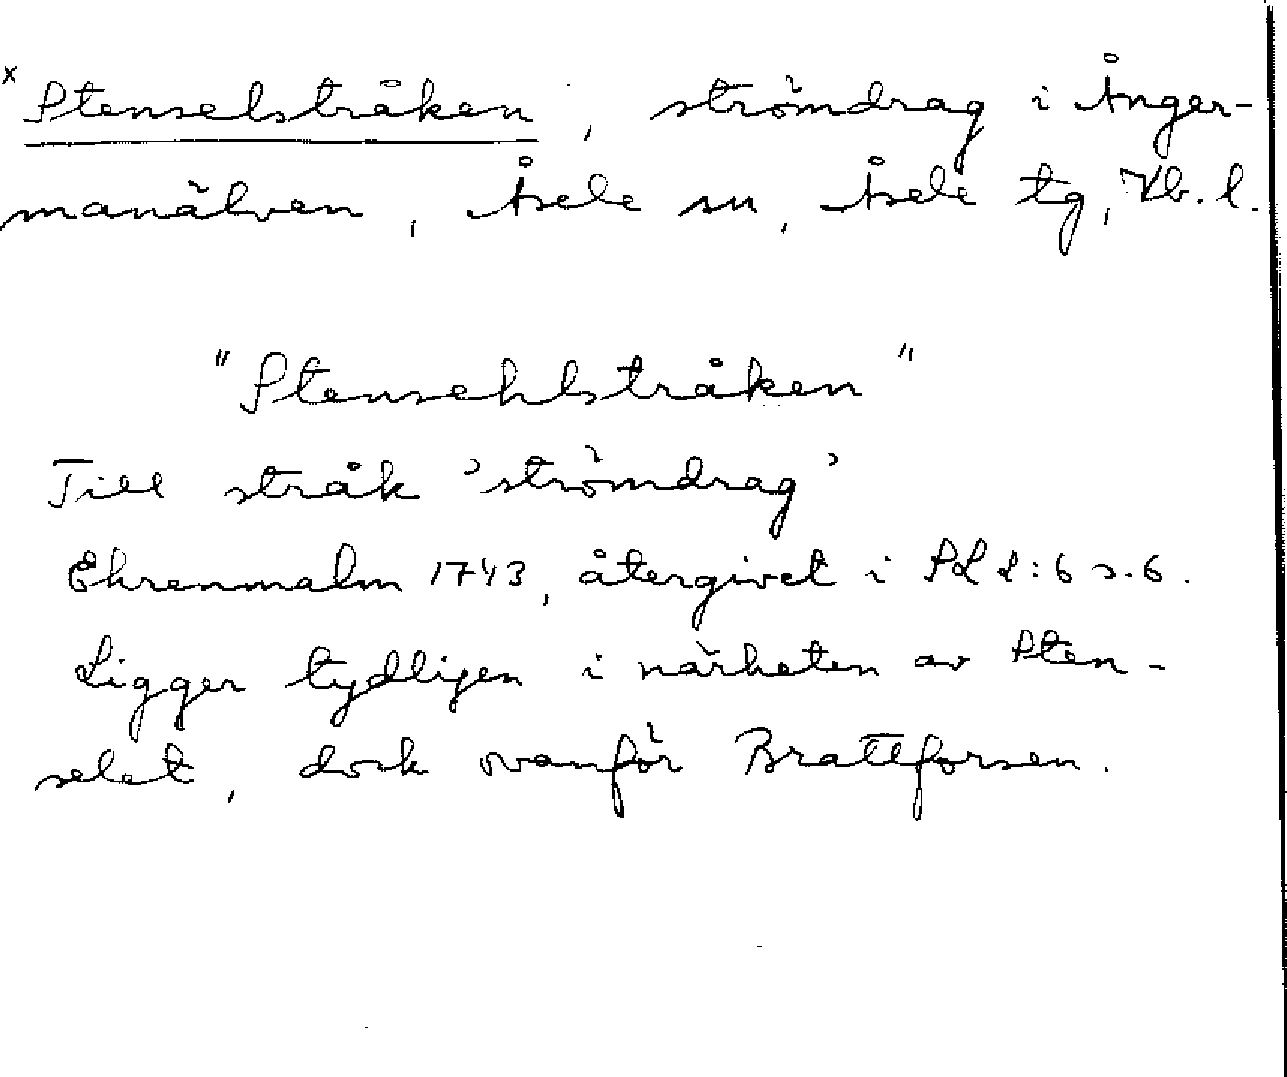 x Stenselstråken, strömdrag i Ånger-
manälven, Åsele sn, Åsele tg, Vb. l.
"Stensehlstråken"
Till stråk 'strömdrag'
Ehrenmalm 1743, återgivet i PL 2:6 s. 6.
Ligger tydligen i närheten av Sten-
selet, dock ovanför Brattforsen.